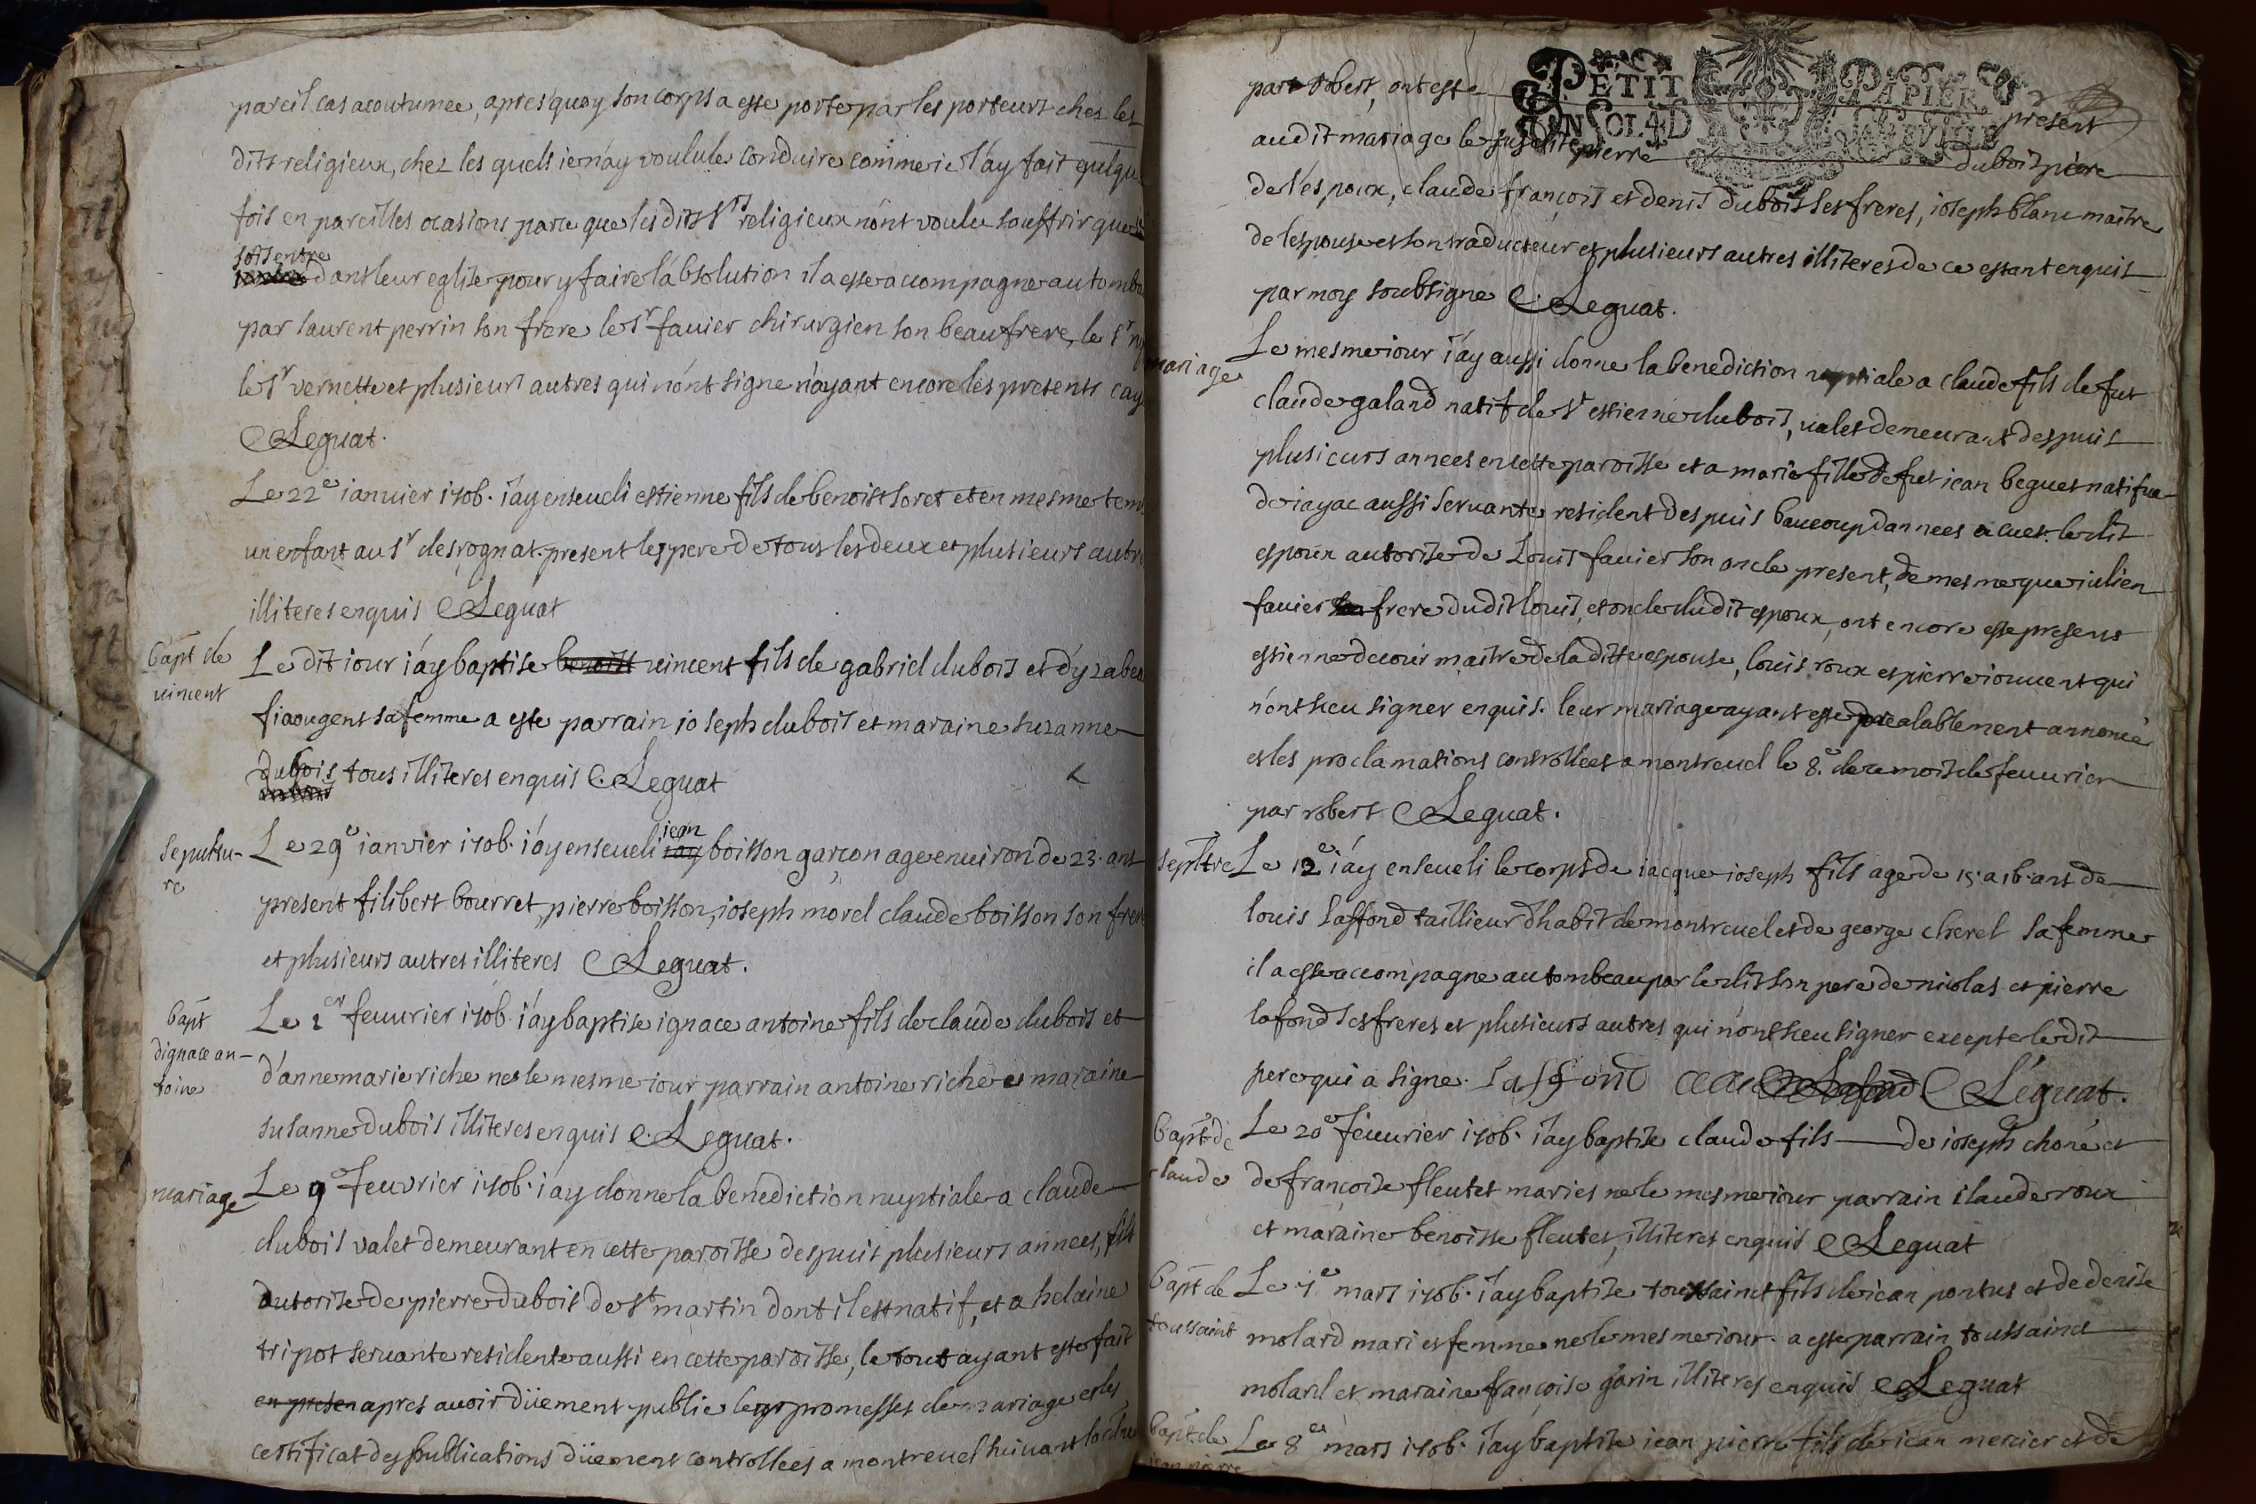 pareil cas acoutumée, apres quoy son corps a esté porté par les porteurs chez les
dits religieux, chez les quels ie n'ay voulu le conduire comme ie l'ay fait quelque
fois en pareilles ocasions parce que les dits Srs religieux n'ont voulu souffrir que ie
sois entré
dans leur eglise pour y faire l'absolution il a esté acompagné au tombe
par laurent perrin son frere le Sr favier chirurgien son beaufrere, le Sr
le Sr vernette et plusieurs autres qui n'ont signé n'ayant encore les presents cay
C Leguat.
Le 22e ianvier 1706. i'ay enseveli estienne fils de benoist soret et en mesme tem
un enfant au Sr desrognat. present les pere de tous les deux et plusieurs autre
illiteres enquis C Leguat
bapt de
vincent
Le dit iour i'ay baptise benoist vincent fils de gabriel dubois et d'yzabea
fiaougent sa femme a esté parrain ioseph dubois et maraine suzanne
dubois tous illiteres enquis C. Leguat
sepultu-
re
Le 29e ianvier 1706. i'ay enseveli iean boisson garçon agé environ de 23. ans
present filibert bourret, pierre boisson, ioseph morel claude boisson son frere
et plusieurs autres illiteres C Leguat.
bapt
dignace an-
toine
Le 1er feuurier 1706. i'ay baptise ignace antoine fils de claude dubois et
d'anne marie riche né le mesme iour parrain antoine riche et maraine
susanne dubois illiteres enquis C. Leguat.
mariage
Le 9e feuvrier 1706. i'ay donné la benediction nuptiale a claude
dubois valet demeurant en cette paroisse despuis plusieurs années, fils
autorisé de pierre dubois de St martin dont il est natif, et a helaine
tripot servante residente aussi en cette paroisse, le tout ayant esté fait
en presen apres avoir düement publié leur promesses de mariage et les
certificat des publications düement controllées a montrevel suivant
PETIT PAPIER
part robert, ont esté present
audit mariage le susdit pierre dubois père
de l'espoux, claude françois et denis dubois ses freres, ioseph blanc maitre
de lespouse et son traducteur et plusieurs autres illiteres de ce estant enquis
par moy soubsigné C. Leguat.
mariage
Le mesme iour i'ay aussi donné la benediction nuptiale a claude fils de fut
claude galand natif de St estienne du bois, valet demeurant despuis
plusieurs années en cette paroisse et a marie fille de fut iean beguet natifve
de iayac aussi servante resident despuis baucoup dannees a cuet. le dit
espoux autorisé de Louis favier son oncle present, de mesme que iulien
favier frere dudit louis, et oncle dudit espoux, ont encore esté presens
estienne decour maitre de la ditte espouse, louis roux et pierre iouvent qui
n'ont sceu signer enquis. leur mariage ayant esté prealablement annoncé
et les proclamations controllées a montrevel le 8e de ce mois de feuurier
par robert C Leguat.
sepltre
Le 12e i'ay enseveli le corps de iacque ioseph fils agé de 15. a 16. ans de
louis Laffond taillieur d'habit de montrevel et de george cherel sa femme
il a esté acompagné au tombeau par le dit son pere de nicolas et pierre
lafond ses freres et plusieurs autres qui n'ont sceu signer excepté le dit
pere qui a signé. Laffond C Léguat.
bapt de
claude
Le 20e feuurier 1706. i'ay baptise claude fils de ioseph choné et
de françoise fleutet mariés né le mesme iour parrain claude roux
et maraine benoisse fleutet, illiteres enquis C Leguat
bapt de
toussaint
Le 7e mars 1706. i'ay baptisé toussainct fils de iean portus et de denise
molard mari et femme né le mesme iour. a esté parrain toussainct
molard et maraine françoise garin illiteres enquis C Leguat
bapt de
iean pierre
Le 8e mars 1706. i'ay baptisé iean pierre fils de iean mercier et de